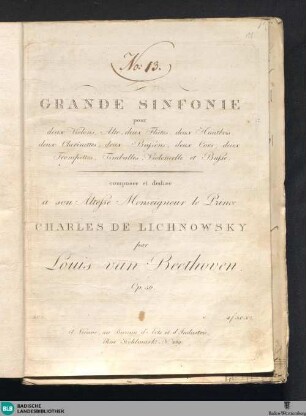 No: 13.
GRANDE SINFONIE
pour
deux Violons, Alto, deux Flûtes, deux Hautbois
deux Clarinettes, deux Bassons, deux Cors, deux
Trompettes, Timballes, Violoncelle et Basse
composée et dediée
a son Altesse Monseigneur le Prince
CHARLES DE LICHNOWSKY
par
Louis van Beethoven
Op. 36
à Vienne, au Bureau d'Arts et d'Industrie
Rue Kohlmarkt N
BLB BADISCHE
LANDESBIBLIOTHEK
Baden-Württemberg